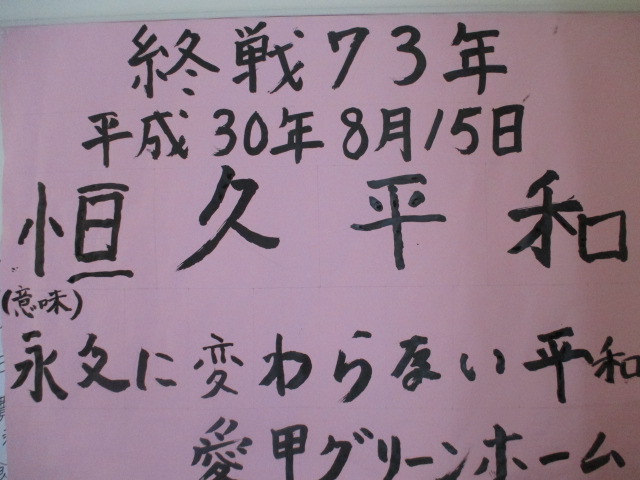 終戦73年
平成30年8月15日
恒久平和
(意味)
永久に変わらない平和
愛甲グリーンホーム